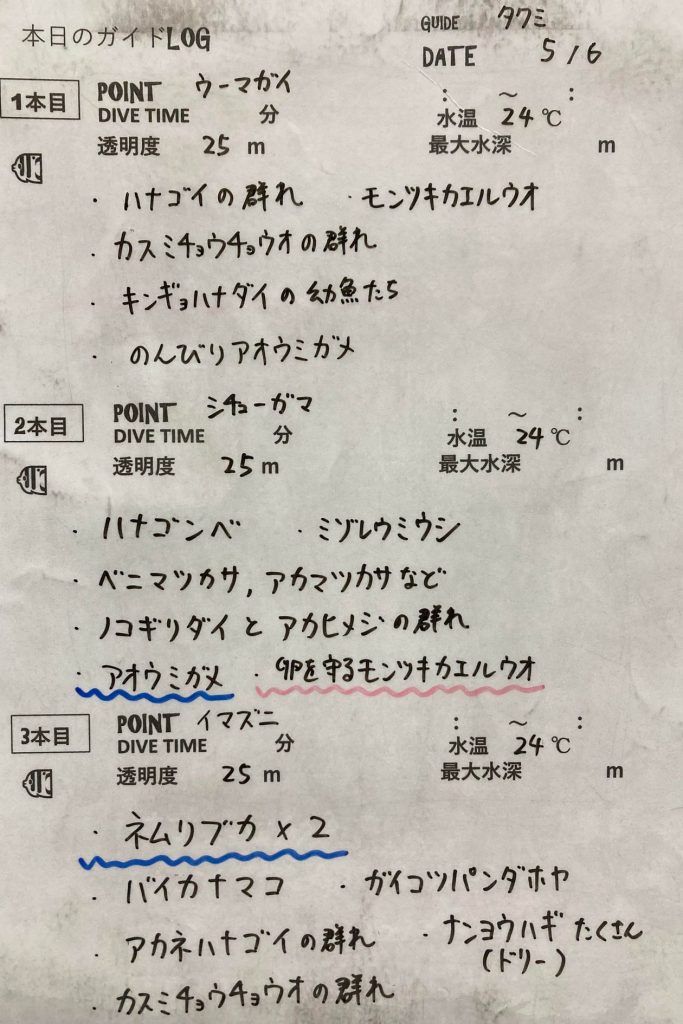 本日のガイドLOG GUIDE タクミ
DATE 5/6
1本目 POINT ウーマガイ : ～ :
DIVE TIME 分 水温 24℃
透明度 25 m 最大水深 m
・ハナゴイの群れ ・モンツキカエルウオ
・カスミチョウチョウオの群れ
・キンギョハナダイの幼魚たち
・のんびりアオウミガメ
2本目 POINT シチューガマ : ～ :
DIVE TIME 分 水温 24℃
透明度 25 m 最大水深 m
・ハナゴンベ ・ミゾレウミウシ
・ベニマツカサ, アカマツカサなど
・ノコギリダイとアカヒメジの群れ
・アオウミガメ ・卵を守るモンツキカエルウオ
3本目 POINT イマズニ : ～ :
DIVE TIME 分 水温 24℃
透明度 25 m 最大水深 m
・ネムリブカ×2
・バイカナマコ ・ガイコツパンダホヤ
・アカネハナゴイの群れ ・ナンヨウハギたくさん
(ドリー)
・カスミチョウチョウオの群れ